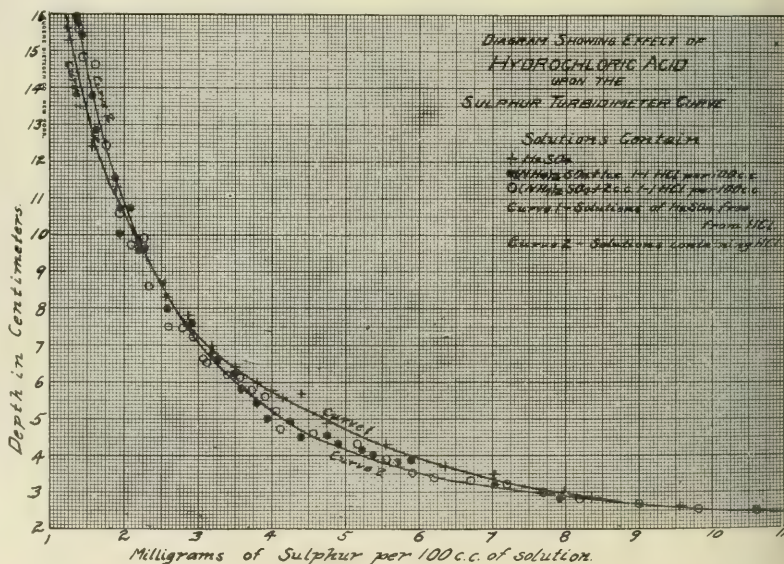 DIAGRAM SHOWING EFFECT OF
HYDROCHLORIC ACID
UPON THE
SULPHUR TURBIDIMETER CURVE
Solutions Contain
+ H2SO4
●(NH4)2SO4+1cc 1-1 HCl per 100cc
○(NH4)2SO4+2c.c. 1-1 HCl per 100cc.
Curve 1 - Solutions of H2SO4 Free
From HCl.
Curve 2 - Solutions containing HCl
Curve 1
Curve 2
Curve 1
Curve 2
Depth in Centimeters.
16
15
14
13
12
11
10
9
8
7
6
5
4
3
2
1 2 3 4 5 6 7 8 9 10 11
Milligrams of Sulphur per 100 c.c. of solution.